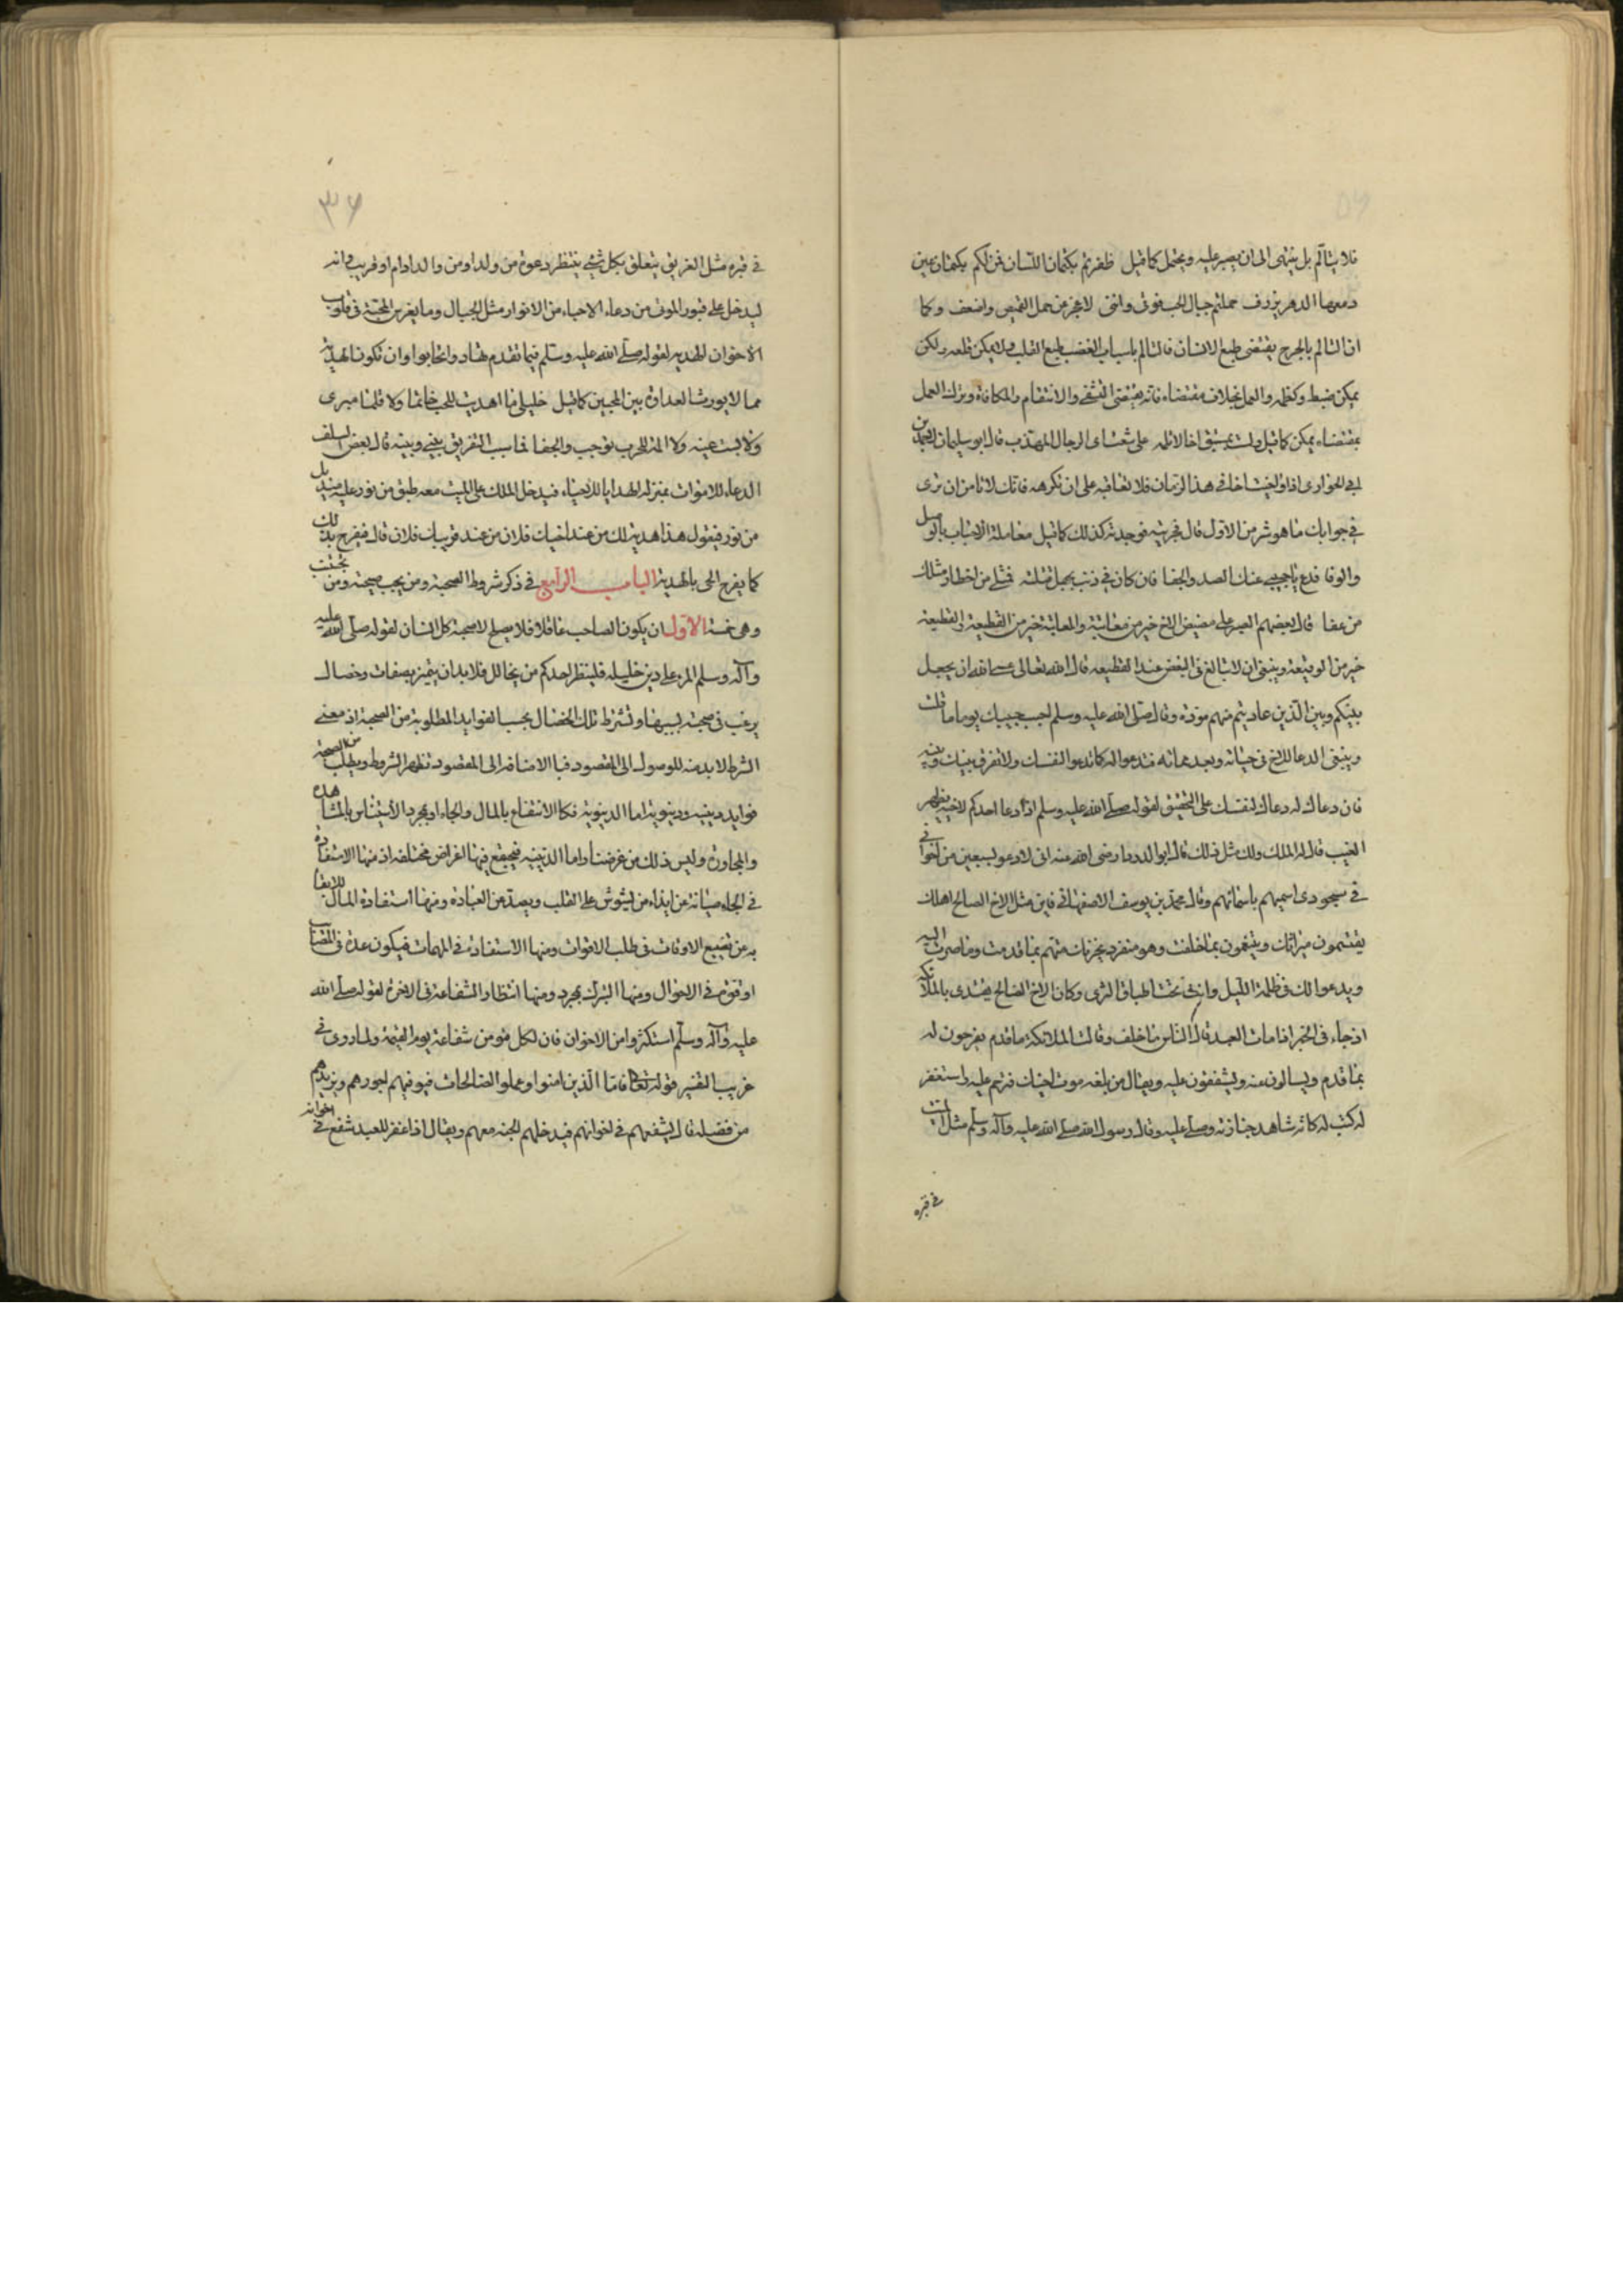 فلا يتالم بل ينتهى الى ان يصبر عليه ويحتمل كما قيل ظفرتم بكتمان اللسان فمن لكم بكتمان عين
دمعها الدهر يزرف حملتم جبال الحب فوقى واننى لاعجز عن حمل القميص واضعف وكما
ان التالم بالجرح يقتضى طبع الانسان فالتالم باسباب الغضب طبع القلب ولا يمكن قلعه ولكن
يمكن ضبطه وكظمه والعمل بخلاف مقتضاه فانه يقتضى التشفى والانتقام والمكافاة وترك العمل
بمقتضاه يمكن كما قيل ولست بمستبق اخا لا تلمه على شعث اى الرجال المهذب قال ابو سليمان لاحمد بن
ابى الحوارى اذا واخيت اخا فى هذا الزمان فلا تعاقبه على ان تكرهه فانك لا تامن ان ترى
فى جوابك ما هو شر من الاول قال فجربته فوجدته كذلك كما قيل معاملة الاحباب بالوصل
والوفا فدع يا حبيبى عنك الصد والجفا فان كان لى ذنب بجهل فعلته فمثلى من اخطا ومثلك
من عفا قال بعضهم الصبر على مضيض الاخ خير من معاتبته والمعاتبة خير من القطيعة والقطيعة
خير من الوقيعة وينبغى ان لا تبالغ فى البغض عند القطيعه قال الله تعالى عسى الله ان يجعل
بينكم وبين الذين عاديتم منهم مودة وقال صلى الله عليه وسلم احبب حبيبك يوما ما
وينبغى الدعا للاخ فى حياته وبعد مماته فتدعوا له كما تدعوا لنفسك ولا تفرق بينك وبينه
فان دعاك له دعاك لنفسك على التحقيق لقوله صلى الله عليه وسلم اذا دعا احدكم لاخيه بظهر
الغيب قال له الملك ولك مثل ذلك قال ابو الدردا رضى الله عنه انى لادعو لسبعين من اخوانى
فى سجودى اسميهم باسمائهم وقال محمد بن يوسف الاصفهانى فاين مثل الاخ الصالح اهلك
يقتسمون ميراثك ويتنعمون بما خلفت وهو منفرد بحزنك مهتم بما قدمت وما صرت اليه
ويدعوا لك فى ظلمة الليل وانت تحت اطباق الثرى وكان الاخ الصالح يقتدى بالملائكه
اذ جاء فى الخبر اذا مات العبد قال الناس ما خلف وقالت الملائكة ما قدم يفرحون له
بما قدم ويسالون عنه ويشفقون عليه ويقال من بلغه موت اخيك فترحم عليه واستغفر
له كتب له كانه شاهد جنازته وصلى عليه وقال رسول الله صلى الله عليه وآله وسلم مثل الميت
فى قبره
٣٦
فى قبره مثل الغريق يتعلق بكل شئ ينتظر دعوة من ولد او من والد او ام او قريب وانه
ليدخل على قبور الموتى من دعاء الاحياء من الانوار مثل الجبال وما يغرس المحبة فى قلوب
الاخوان الهديه لقوله صلى الله عليه وسلم فيما تقدم تهادوا تحابوا وان تكون الهدية
مما لا يورث العداوة بين المحبين كما قيل خليلى ما اهديت للحب خاتما ولا قلما مبرى
ولا بست عينه ولا المنديل للحرب توجب والجفا فاسباب التفريق بينى وبينه قال بعض السلف
الدعاء للاموات بمنزله الهدايا للاحياء فيدخل الملك على الميت معه طبق من نور عليه منديل
من نور فيقول هذا هدية لك من عند اخيك فلان من عند قريبك فلان قال فيفرح بذلك
كما يفرح الحى بالهدية الباب الرابع فى ذكر شروط الصحبة ومن يجب صحبته ومن يجتنب
وهى خمسة الاول ان يكون الصاحب عاقلا فلا يصلح لا صحبة كل انسان لقوله صلى الله عليه
وآله وسلم المرء على دين خليله فلينظر احدكم من يخالل فلا بد ان يتميز بصفات وخصال
يرغب فى صحبته بسببها وتشترط تلك الخصال بحسب الفوايد المطلوبة من الصحبة اذ معنى
الشرط لا بد منه للوصول الى المقصود فبالاضافه الى المقصود تظهر الشروط ويطلب من الصحبة
فوايد دينيه ودنيوية اما الدنيوية فكالانتفاع بالمال والجاه او مجرد الاستيناس بالمشاهدة
والمجاورة وليس ذلك من غرضنا واما الدينيه فيجتمع فيها اغراض مختلفه اذ منها الاستفادة
فى الجاه صيانة عن ايذاء من يشوش على القلب ويصد عن العبادة ومنها استفادة المال للاكتفا
به عن تضييع الاوقات فى طلب الاقوات ومنها الاستفادة فى المهمات فيكون عدة فى المصايب
او قوة فى الاحوال ومنها التبرك بمجرد ومنها انتظار الشفاعة فى الاخرة لقوله صلى الله
عليه وآله وسلم استكثروا من الاخوان فان لكل مؤمن شفاعة يوم القيمة ولما روى فى
غريب التفسير قوله تعالى فاما الذين امنوا وعملوا الصالحات فيوفيهم اجورهم ويزيدهم
من فضله قال يشفعهم فى اخوانهم فيدخلهم الجنه معهم ويقال اذا غفر للعبد شفع فى اخوانه